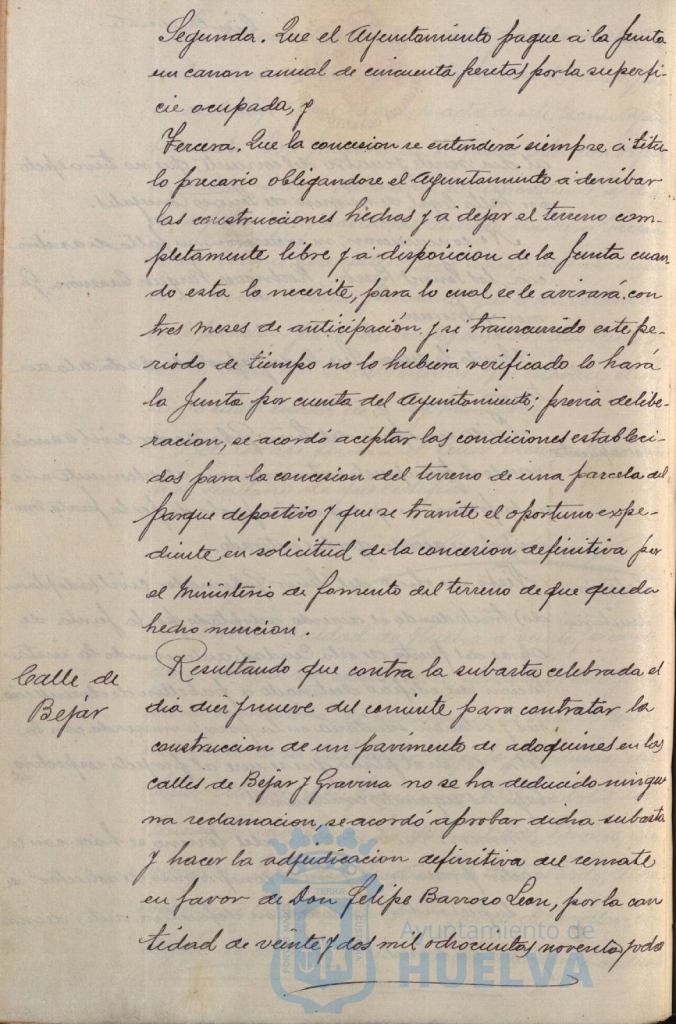 Segunda. Que el Ayuntamiento pague a la Junta
un canon anual de cincuenta pesetas por la superfi-
cie ocupada, y
Tercera. Que la concesion se entenderá siempre a titu-
lo precario obligandose el Ayuntamiento a derribar
las construcciones hechas y a dejar el terreno com-
pletamente libre y a disposicion de la Junta cuan-
do esta lo necesite, para lo cual se le avisará con
tres meses de anticipación y si transcurrido este pe-
riodo de tiempo no lo hubiera verificado lo hará
la Junta por cuenta del Ayuntamiento; previa delibe-
racion, se acordó aceptar las condiciones estableci-
dos para la concesion del terreno de una parcela del
parque deportivo y que se tramite el oportuno expe-
diente en solicitud de la concesion definitiva por
el Ministerio de fomento del terreno de que queda
hecho mencion.
Calle de
Bejár
Resultando que contra la subasta celebrada el
dia diez y nueve del corriente para contratar la
construccion de un pavimento de adoquines en las
calles de Bejar y Gravina no se ha deducido ningu-
na reclamacion, se acordó aprobar dicha subasta
y hacer la adjudicacion definitiva del remate
en favor de Don Felipe Barroso Leon, por la can
tidad de veinte y dos mil ochocientas noventa y dos
Ayuntamiento de
HUELVA